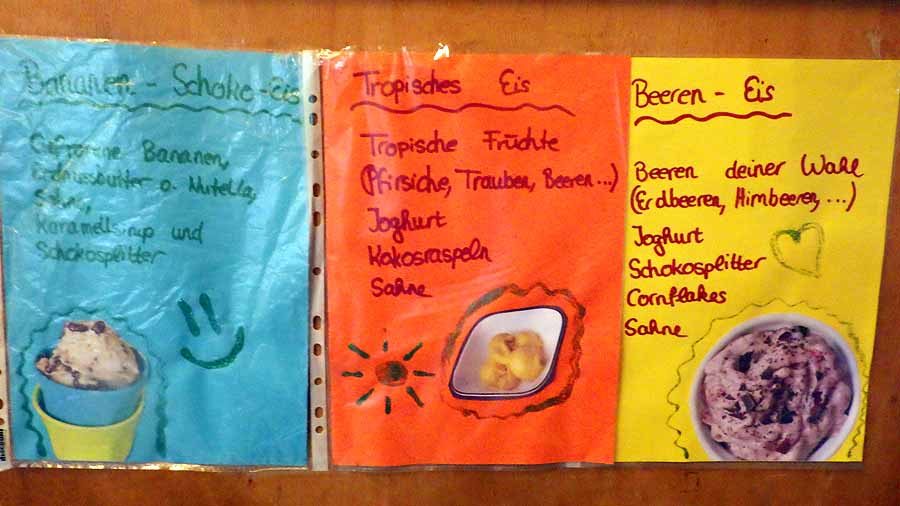 Bananen - Schoko-Eis
Gefrorene Bananen,
Erdnussbutter o. Nutella,
Sahne,
Karamellsirup und
Schokosplitter
Tropisches Eis
Tropische Früchte
(Pfirsiche, Trauben, Beeren...)
Joghurt
Kokosraspeln
Sahne
Beeren - Eis
Beeren deiner Wahl
(Erdbeeren, Himbeeren, ...)
Joghurt
Schokosplitter
Cornflakes
Sahne